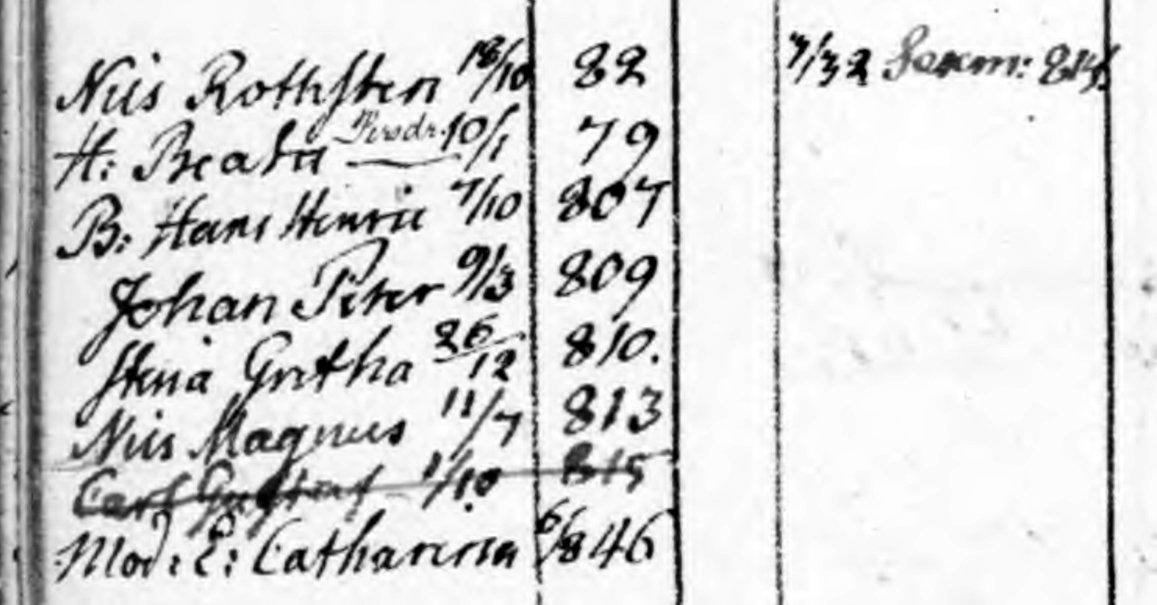 Nils Rothsten 18/10 82 7/32 Sexm: 814.
H: Beata Persdr. 10/1 79
B: Hans Henric 7/10 807
Johan Peter 9/3 809
Stina Gretha 26/12 810.
Nils Magnus 11/7 813
Carl Gustaf 1/10 815
Mod: E: Catharina 6/8 46